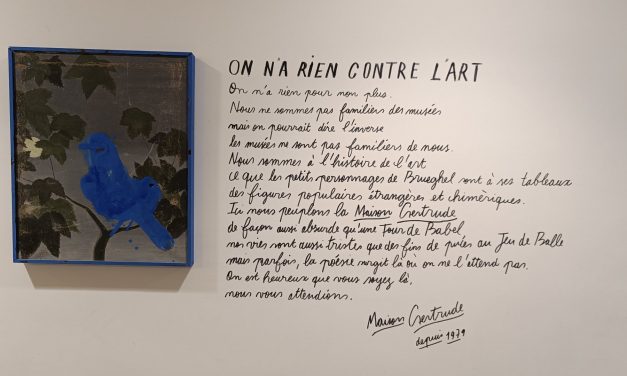 ON N'A RIEN CONTRE L'ART
On n'a rien pour non plus.
Nous ne sommes pas familiers des musées
mais on pourrait dire l'inverse
les musées ne sont pas familiers de nous.
Nous sommes à l'histoire de l'art
ce que les petits personnages de Brueghel sont à ses tableaux
des figures populaires étrangères et chimériques.
Ici nous peuplons la Maison Gertrude
de façon aussi absurde qu'une Tour de Babel
nos vies sont aussi tristes que des fins de puces au Jeu de Balle
mais parfois, la poésie surgit là où on ne l'attend pas.
On est heureux que vous soyez là,
nous vous attendions.
Maison Gertrude
depuis 1979